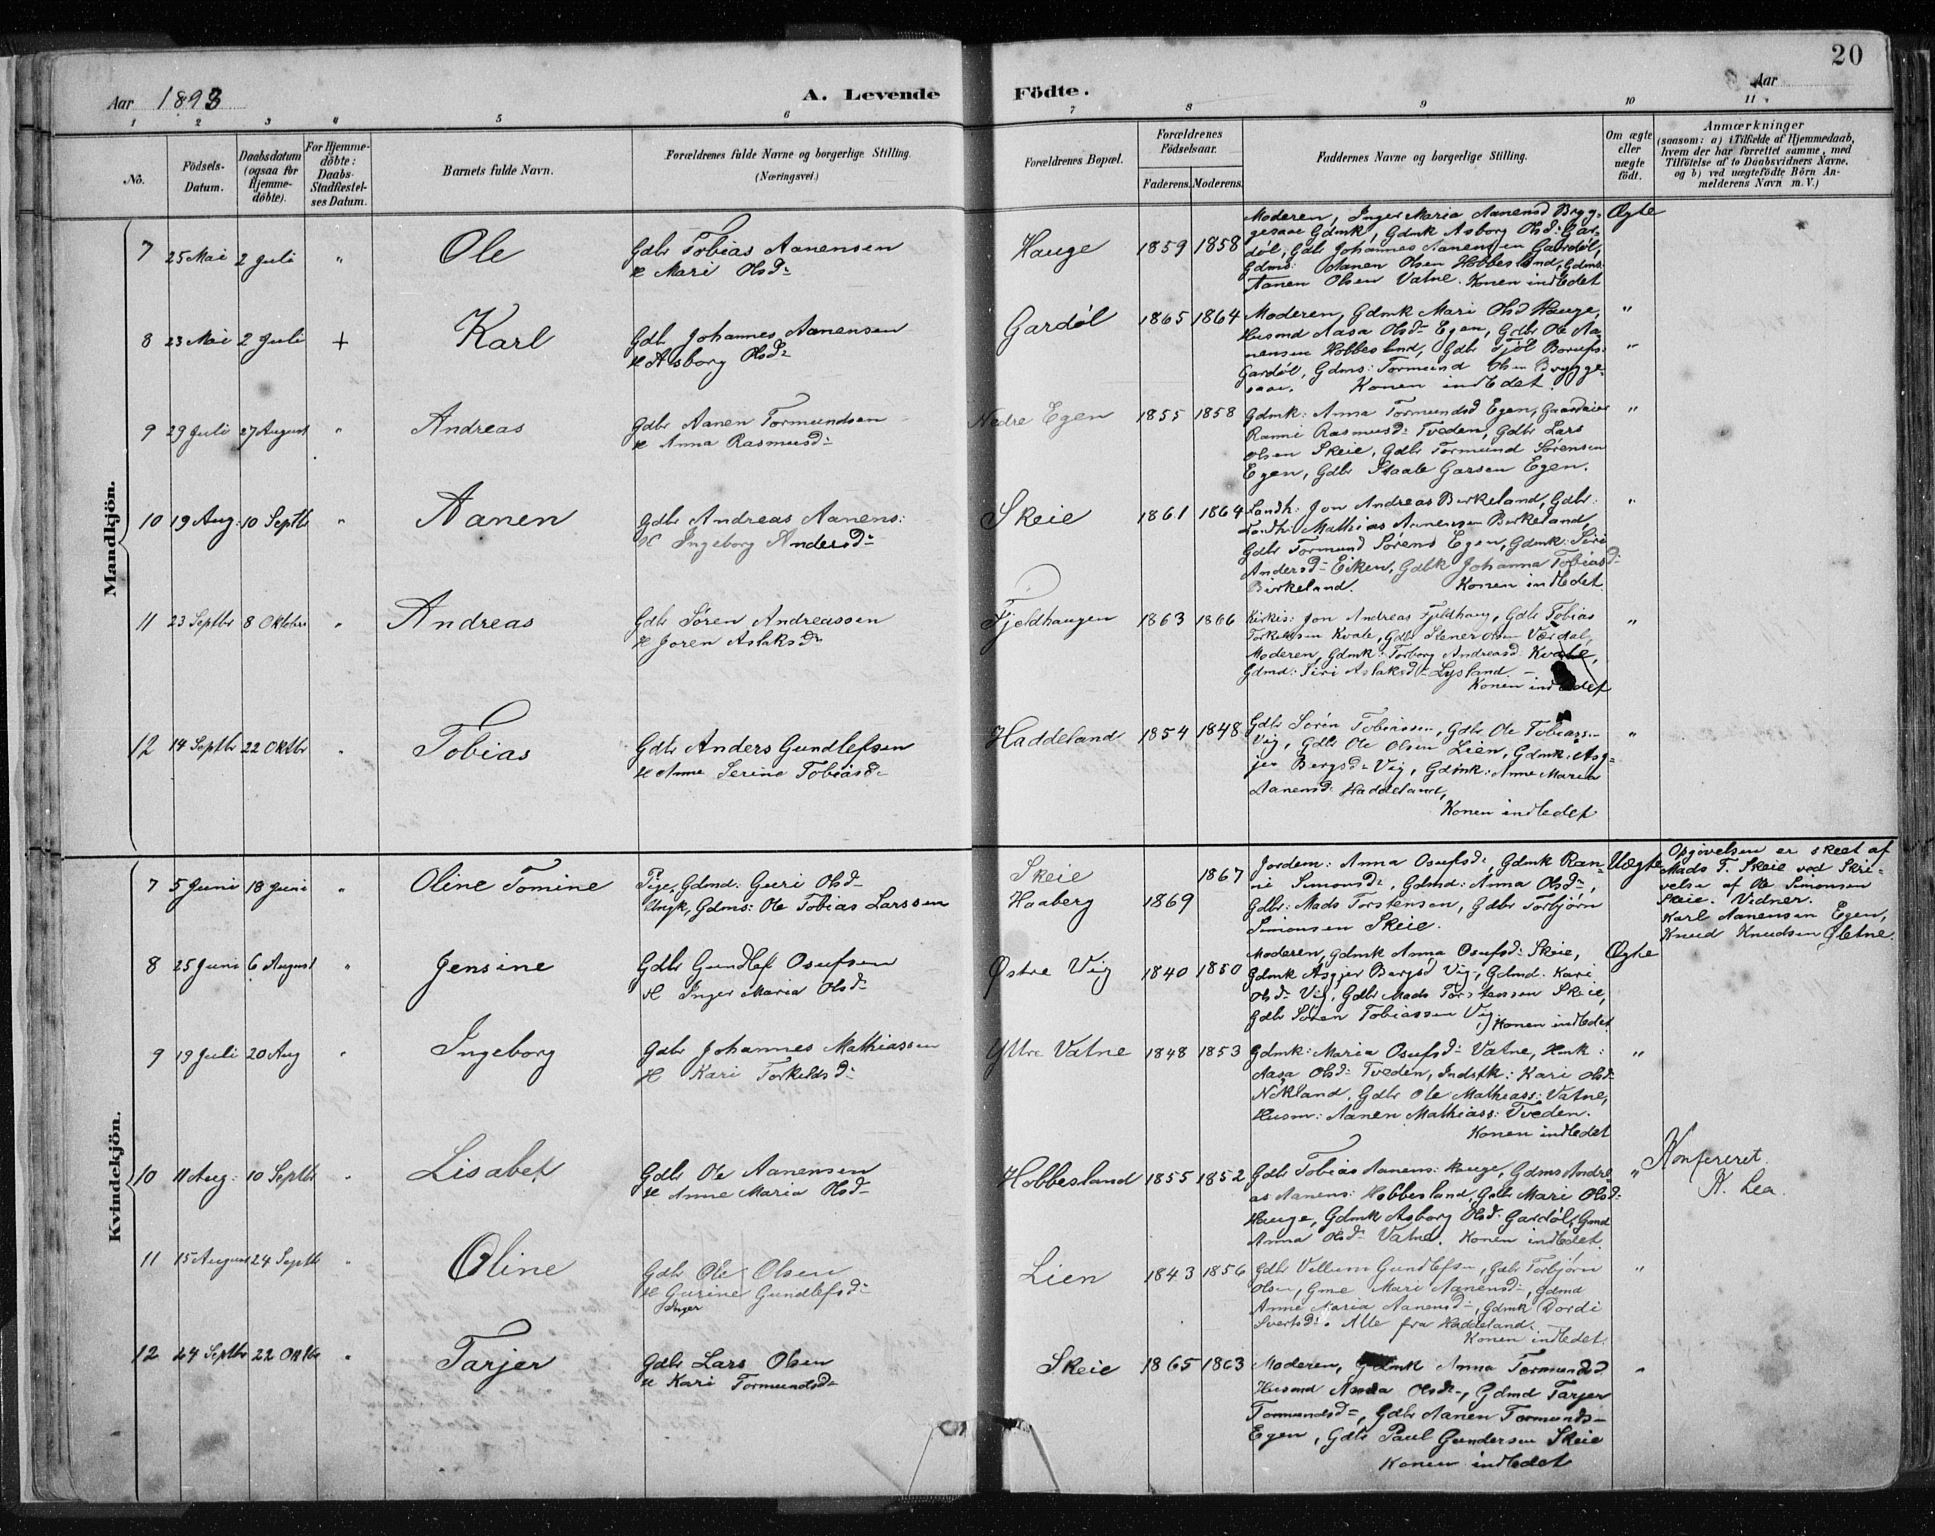 20
Aar 1893 A. Levende Födte. Aar
1 2 3 4 5 6 7 8 9 10 11.
No. Födsels-Datum. Daabsdatum (ogsaa for Hjemme-döbte). For Hjemme-döbte: Daabs-Stadfæstel-ses Datum. Barnets fulde Navn. Forældrenes fulde Navne og borgerlige Stilling. (Næringsvei.) Forældrenes Bopæl. Forældrenes Födselsaar. Faderens. Moderens. Faddernes Navne og borgerlige Stilling. Om ægte eller uægte födt. Anmærkninger (saasom: a) i Tilfælde af Hjemmedaab, hvem der har forrettet samme, med Tilföielse af to Daabsvidners Navne, og b) ved uægtefödte Börn An-melderens Navn m. V.)
Mandkjön.
7 25 Mai 2 Juli " Ole
Gdbr Tobias Aanensen
& Mari Olsd:
Hauge 1859 1858
Moderen, Inger Maria Aanensd Bryg-
gesaae Gdmk, Gdmk Asborg Olsd: Gar-
döl, Gdbr Johannes Aanensen Gardøl,
Gdms: Aanen Olsen Hobbesland, Gdms:
Aanen Olsen Vatne. Konen indledet
Ægte
8 23 Mai 2 Juli + Karl
Gdbr Johannes Aanensen
& Asborg Olsd:
Gardøl 1865 1864
Moderen, Gdmk Mari Olsd Hauge,
Husmd Aasa Olsd: Egen, Gdbr Ole Aa-
nensen Hobbesland, Gdbr Tjöl
Gardøl, Gdms: Tormund Olsen Brygge-
saae. Konen indledet.
"
"
9 29 Juli 27 August " Andreas
Gdbr Aanen Tormundsen
& Anna Rasmusd:
Nedre Egen 1855 1858
Gdmk: Anna Tormundsd Egen,
Ranni Rasmusd: Tveden, Gdbr Lars
Olsen Skeie, Gdbr Tormund Sørensen
Egen, Gdbr Staale Garsen Egen.
"
10 19 Aug: 10 Septbr " Aanen
Gdbr Andreas Aanens:
& Ingeborg Andersd:
Skeie 1861 1864
Landh: Jon Andreas Birkeland, Gdbr:
Landh: Mathias Aanensen Birkeland,
Gdbr Tormund Sørens Egen, Gdmk: Siri
Andersd: Eiken, Gdbk Johanna Tobiasd:
Birkeland. Konen indledet
"
11 23 Septbr 8 Oktobr " Andreas
Gdbr Sören Andreassen
& Joren Aslaksd:
Fjeldhaugen 1863 1866
Kirkes: Jon Andreas Fjeldhaug, Gdbr Tobias
Torkelsen Kvale, Gdbr Stener Olsen Værdal,
Moderen, Gdmk: Torborg Andreasd: Kvale,
Gdmd: Siri Aslaksd: Lysland. -
Konen indledet
"
12 14 Septbr 22 Oktbr " Tobias
Gdbr Anders Gundlefsen
& Anne Serine Tobiasd:
Haddeland 1854 1848
Gdbr Sören Tobiassen, Gdbr Ole Tobiassn
Vig, Gdbr Ole Olsen Lien, Gdmk: Asg-
jer Bergsd: Vig, Gdmk: Anne Maria
Aanensd: Haddeland,
Konen indledet
"
Kvindekjön.
7 5 Juni 18 Juni " Oline Tomine
Pige, Gdmd: Guri Olsd:
Ungk, Gdms: Ole Tobias Larssen
Skeie 1867
Haaberg 1869
Jordem: Anna Osufsd:, Gdmk Ran-
ni Simonsd:, Gdmd: Anna Olsd:,
Gdbr: Mads Torstensen, Gdbr Torbjörn
Simonsen Skeie.
Uægte
Opgivelsen er skeet af
Mads T. Skeie ved Skri-
velse af Ole Simonsen
Skeie. Vidner.
Karl Aanensen Egen,
Knud Knudsen Øletne.
8 25 Juni 6 August " Jensine
Gdbr Gundlef Osufsen
& Inger Maria Olsd:
Østre Vig 1840 1850
Moderen, Gdmk Anna Osufsd: Skeie,
Gdmk Asgjer Bergsd Vig, Gdmd: Kari
Olsd: Vig, Gdbr Mads Torstensen Skeie,
Gdbr Sören Tobiassen Vig, Konen indledet
Ægte
9 19 Juli 20 Aug " Ingeborg
Gdbr Johannes Mathiassen
& Kari Torkelsd:
Yttre Vatne 1848 1853
Gdmk: Maria Osufsd: Vatne, Hmk:
Aasa Olsd: Tveden, Indstk: Kari Olsd:
Nökland, Gdbr Ole Mathiass: Vatne,
Husm: Aanen Mathiass: Tveden.
Konen indledet
"
10 11 Aug: 10 Septbr " Lisabet
Gdbr Ole Aanensen
& Anne Maria Olsd:
Hobbesland 1855 1852
Gdbr Tobias Aanens: Hauge, Gdms Andre-
as Aanens: Hobbesland, Gdbr Mari Olsd:
Hauge, Gdmk Asborg Olsd: Gardøl, Gmd
Anna Olsd: Vatne. Konen indledet.
"
Konfereret
K. Lea.
11 15 August 24 Septbr " Oline
Gdbr Ole Olsen
& Gurine Gundlefsd:
Inger
Lien 1843 1856
Gdbr Vellum Gundlefsn, Gdbr Torbjörn
Olsen, Gme Mari Aanensd:, Gdmd
Anne Maria Aanensd:, Gdmk Bordi
Sivertsd:. Alle fra Haddeland.
Konen indledet.
"
12 24 Septbr 22 Oktbr " Tarjer
Gdbr Lars Olsen
& Kari Tormundsd:
Skeie 1865 1863
Moderen, Gdmk Anna Tormundsd
Husmd Anna Olsd:, Gdmd Tarjer
Tormundsd:, Gdbr Aanen Tormunds-
Egen, Gdbr Paul Gundersen Skeie
Konen indledet
"